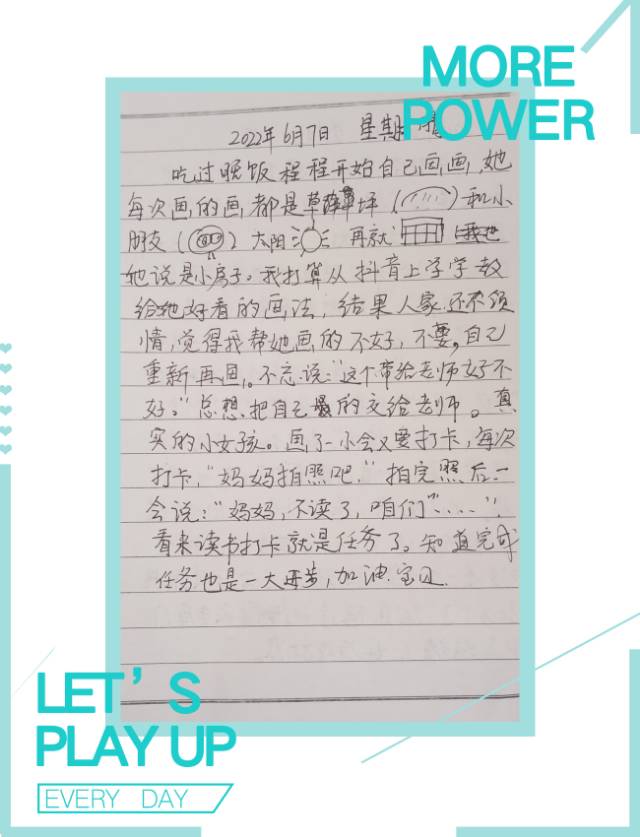 MORE
POWER
2022年6月7日 星期 晴
吃过晚饭程程开始自己画画,她
每次画的画都是草坪()和小
朋友()太阳 再就
她说是小房子。我打算从抖音上学学教
给她好看的画法,结果人家还不领
情,觉得我帮她画的不好,不要,自己
重新再画。不忘说:“这个带给老师好不
好。”总想把自己的交给老师。真
实的小女孩。画了一小会又要打卡,每次
打卡,“妈妈拍照吧。”拍完照后一
会说:“妈妈,不读了,咱们“....”。
看来读书打卡就是任务了。知道完成
任务也是一大进步,加油.宝贝.
LET’S
PLAY UP
EVERY DAY